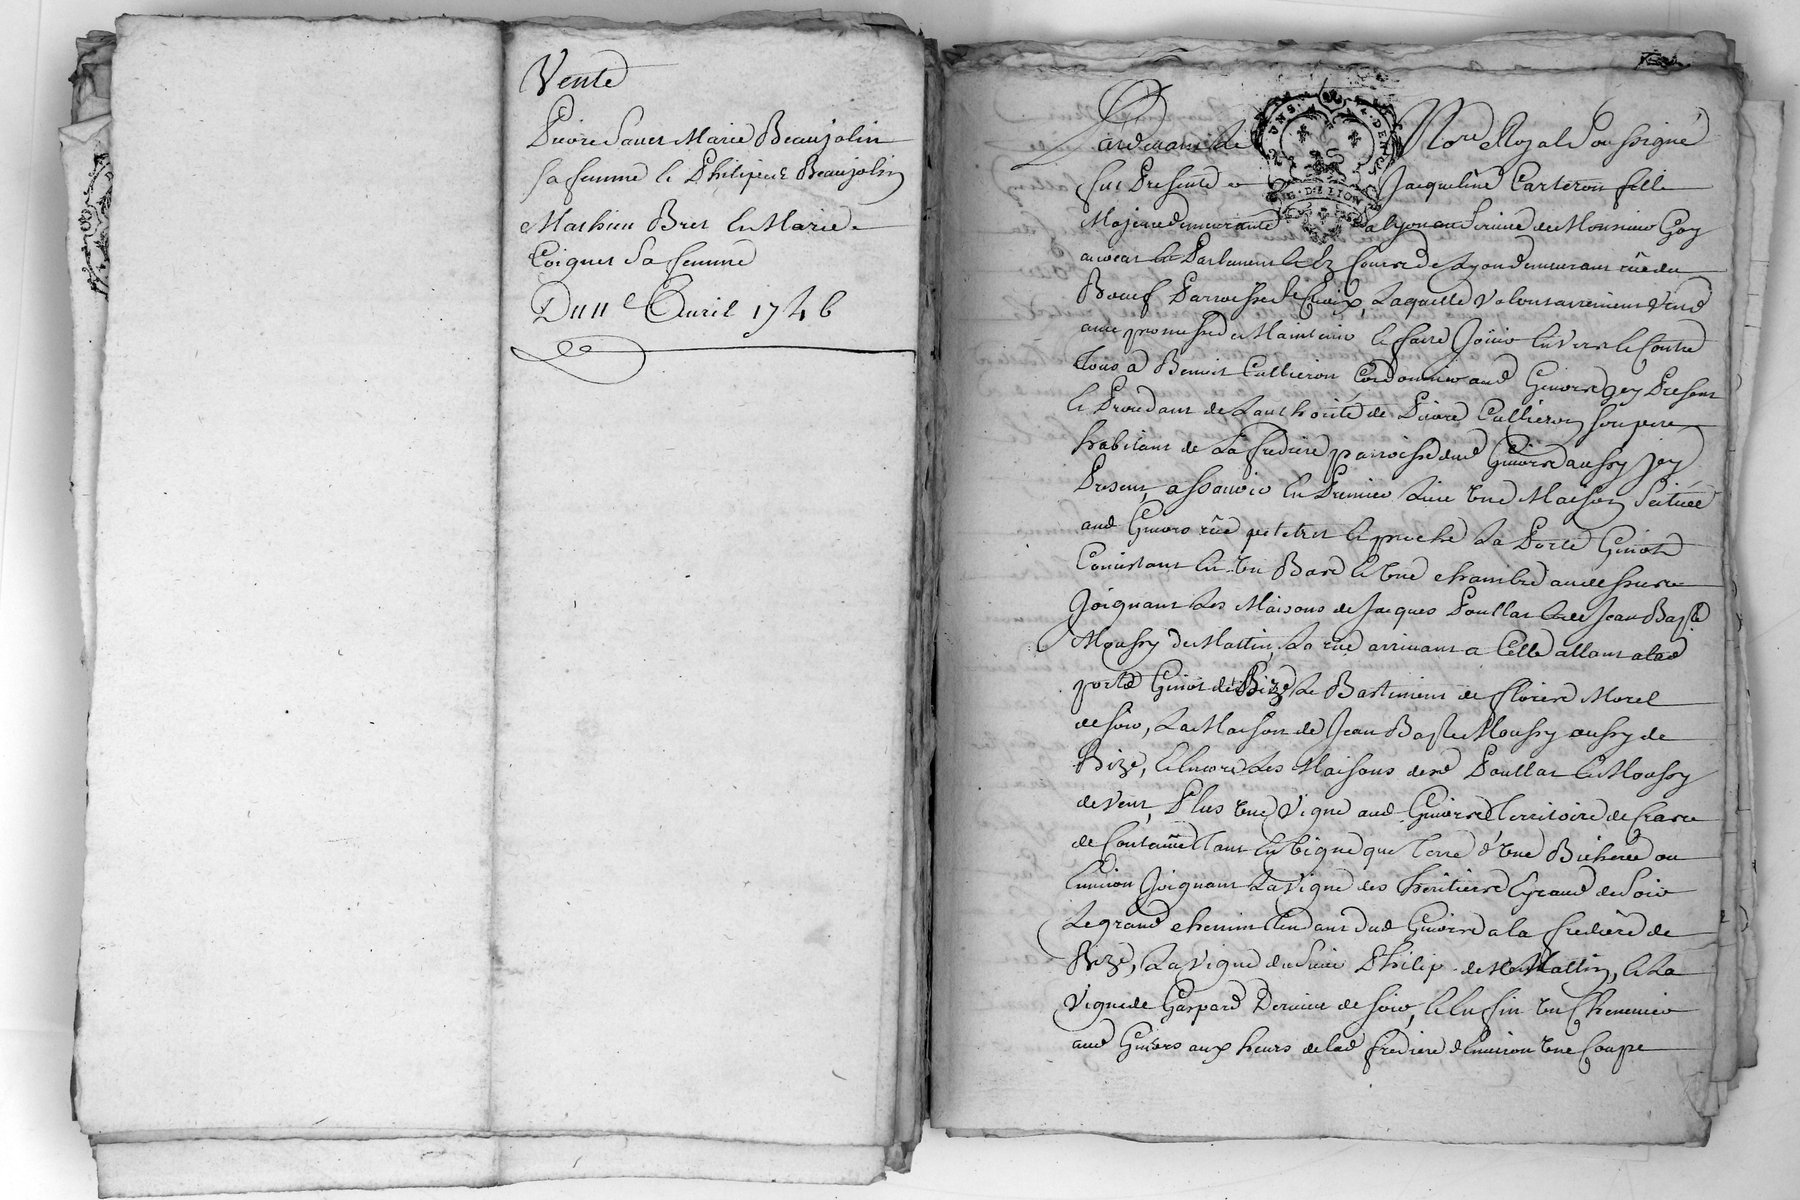 Vente
Pierre Janet Marie Beaujolin
sa femme & Philipe & Beaujolin
Mathieu Bret & Marie
Coignet Sa femme
Du 11e Avril 1746
Pardevant Le Nore Royal Soussigné
fut Presente Jacqueline Carteron fille
Majeure demeurante a lyon au Service de Monsieur Goy
avocat en Parlement & Cours de Lyon demeurant rüe du
Boeuf Parroisse Ste Croix, Laquelle Volontairement Vend
avec promesse de Maintenir & faire Joüir Envers & Contre
Tous a Benoit Cullieron Cordonnier aud Givors jcy Present
& Procedant de Lauthorité de Pierre Cullieron Son pere
habitant de La fredière parroisse dud Givors aussy jcy
Present, assavoir En Premier Lieu Une Maison Scituée
aud Givors rüe et proche La Porte Givois
Consistant En Un Bas & Une chambre au dessus
Joignant Les Maisons de Jacques Poullat & de Jean Bapte
Moussy de Mattin, La rüe arrivant a Celle allant a lad
porte Givois de Bize, Le Bastiment de Morel
de soir, La Maison de Jean Bapte Moussy aussy de
Bize, & Encore Les Maisons desd Poullat & Moussy
de Vent, Plus Une Vigne aud Givors Territoire de
de Contenüe Tant En Vigne que Terre d'Une Bicherée ou
Environ Joignant La Vigne des heritiers de Soir
Le grand chemin Tendant dud Givors a la fredière de
Bize, La Vigne du Sieur Philip de Mattin, & La
Vigne de Gaspard de soir, & Enfin Un Chenevier
aud Givors aux heurs de lad fredière d'Environ Une Coupe
UNS. DENIERS
GE. DE LION